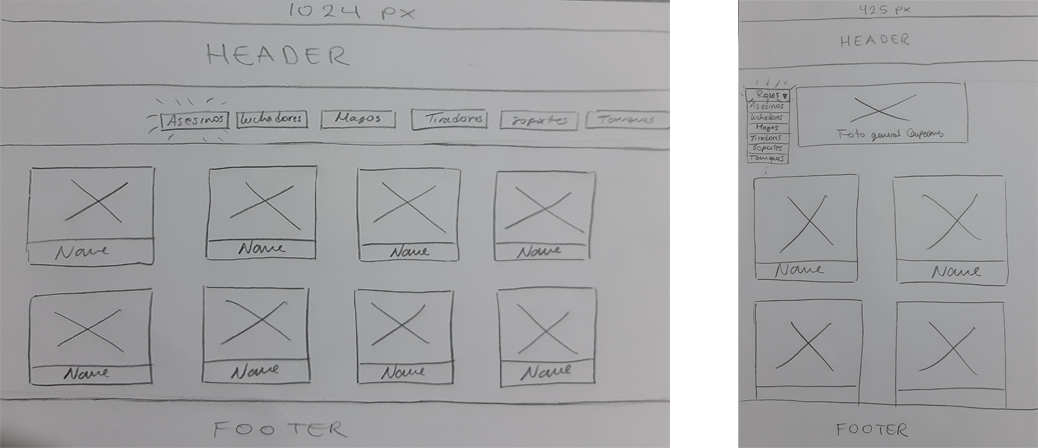 1024 px
HEADER
Asesinos Luchadores Magos Tiradores Soportes Tanques
Name Name Name Name
Name Name Name Name
FOOTER
425 px
HEADER
Roles
Asesinos
Luchadores
Magos
Tiradores
Soportes
Tanques
Foto general Campeones
Name Name
FOOTER